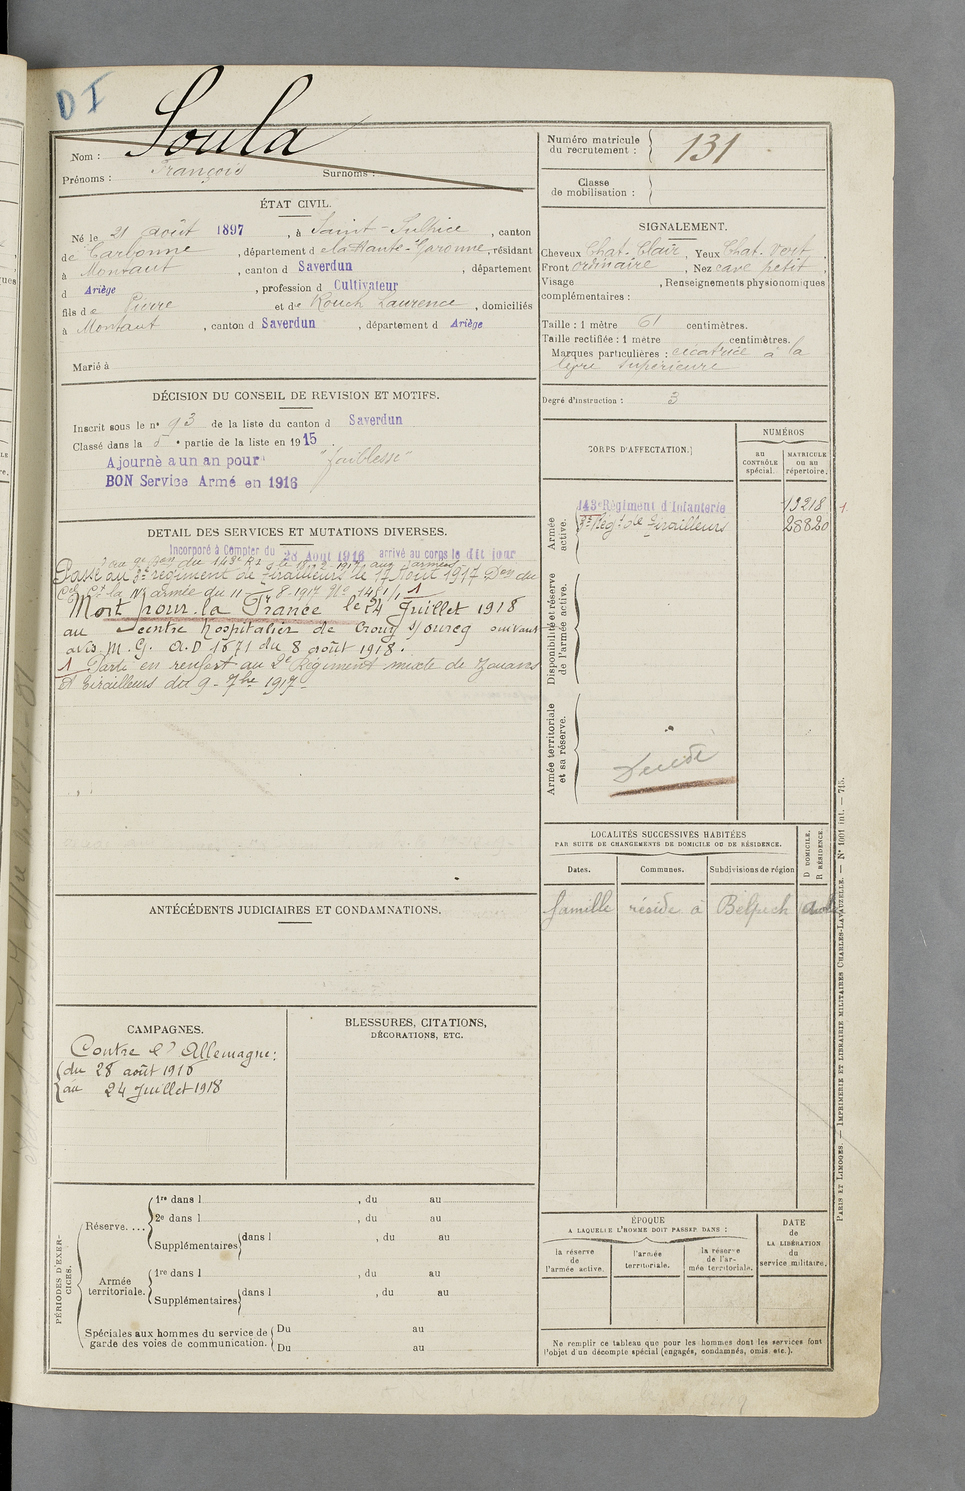 D I
Soula
Nom :
Prénoms : François Surnoms :
Numéro matricule du recrutement : 131
Classe de mobilisation :
ÉTAT CIVIL.
Né le 21 août 1897, à Saint-Sulpice, canton
de Carbonne, département de la Haute-Garonne, résidant
à Montaut, canton d Saverdun, département
d Ariège, profession d Cultivateur
fils de Pierre et de Rouch Laurence, domiciliés
à Montaut, canton d Saverdun, département d Ariège
Marié à
SIGNALEMENT.
Cheveux Chat. Clair, Yeux Chat. Vert,
Front ordinaire, Nez cave petit,
Visage , Renseignements physionomiques
complémentaires :
Taille : 1 mètre 61 centimètres.
Taille rectifiée : 1 mètre centimètres.
Marques particulières : cicatrice à la
lèvre supérieure
Degré d'instruction : 3
DÉCISION DU CONSEIL DE REVISION ET MOTIFS.
Inscrit sous le n° 93 de la liste du canton d Saverdun
Classé dans la 5e partie de la liste en 1915.
Ajourné a un an pour "faiblesse"
BON Service Armé en 1916
DETAIL DES SERVICES ET MUTATIONS DIVERSES.
Incorporé à Compter du 28 Août 1916 arrivé au corps le dit jour
Passé au 8e régiment de Tirailleurs le 17 Août 1917 Don du
Mort pour la France le 24 Juillet 1918
au centre hospitalier de Crouy s/ourcq suivant
avis M. G. A.D 1671 du 8 août 1918.
1 Parti en renfort au 2e Régiment mixte de Zouaves
et Tirailleurs du 9 - 7bre 1917
CORPS D'AFFECTATION.
NUMÉROS
au CONTRÔLE spécial.
MATRICULE ou au répertoire.
Armée active.
143e Régiment d'Infanterie 13218
8e Régt de Tirailleurs 28820
Disponibilité et réserve de l'armée active.
Armée territoriale et sa réserve.
Décédé
LOCALITÉS SUCCESSIVES HABITÉES
PAR SUITE DE CHANGEMENTS DE DOMICILE OU DE RÉSIDENCE.
D DOMICILE. R RÉSIDENCE.
Dates. Communes. Subdivisions de région
famille réside à Belpech Aude
ANTÉCÉDENTS JUDICIAIRES ET CONDAMNATIONS.
CAMPAGNES.
Contre l'Allemagne:
du 28 août 1916
au 24 Juillet 1918
BLESSURES, CITATIONS,
DÉCORATIONS, ETC.
PÉRIODES D'EXERCICES.
Réserve....
1re dans l , du au
2e dans l , du au
Supplémentaires dans l , du au
Armée territoriale.
1re dans l , du au
Supplémentaires dans l , du au
Spéciales aux hommes du service de garde des voies de communication.
Du au
Du au
ÉPOQUE
A LAQUELLE L'HOMME DOIT PASSER DANS :
la réserve de l'armée active.
l'armée territoriale.
la réserve de l'armée territoriale.
DATE de LA LIBÉRATION du service militaire.
Ne remplir ce tableau que pour les hommes dont les services font
l'objet d'un décompte spécial (engagés, condamnés, omis. etc.).
PARIS ET LIMOGES. — IMPRIMERIE ET LIBRAIRIE MILITAIRES CHARLES-LAVAUZELLE. — N° 1001 int. — 715.